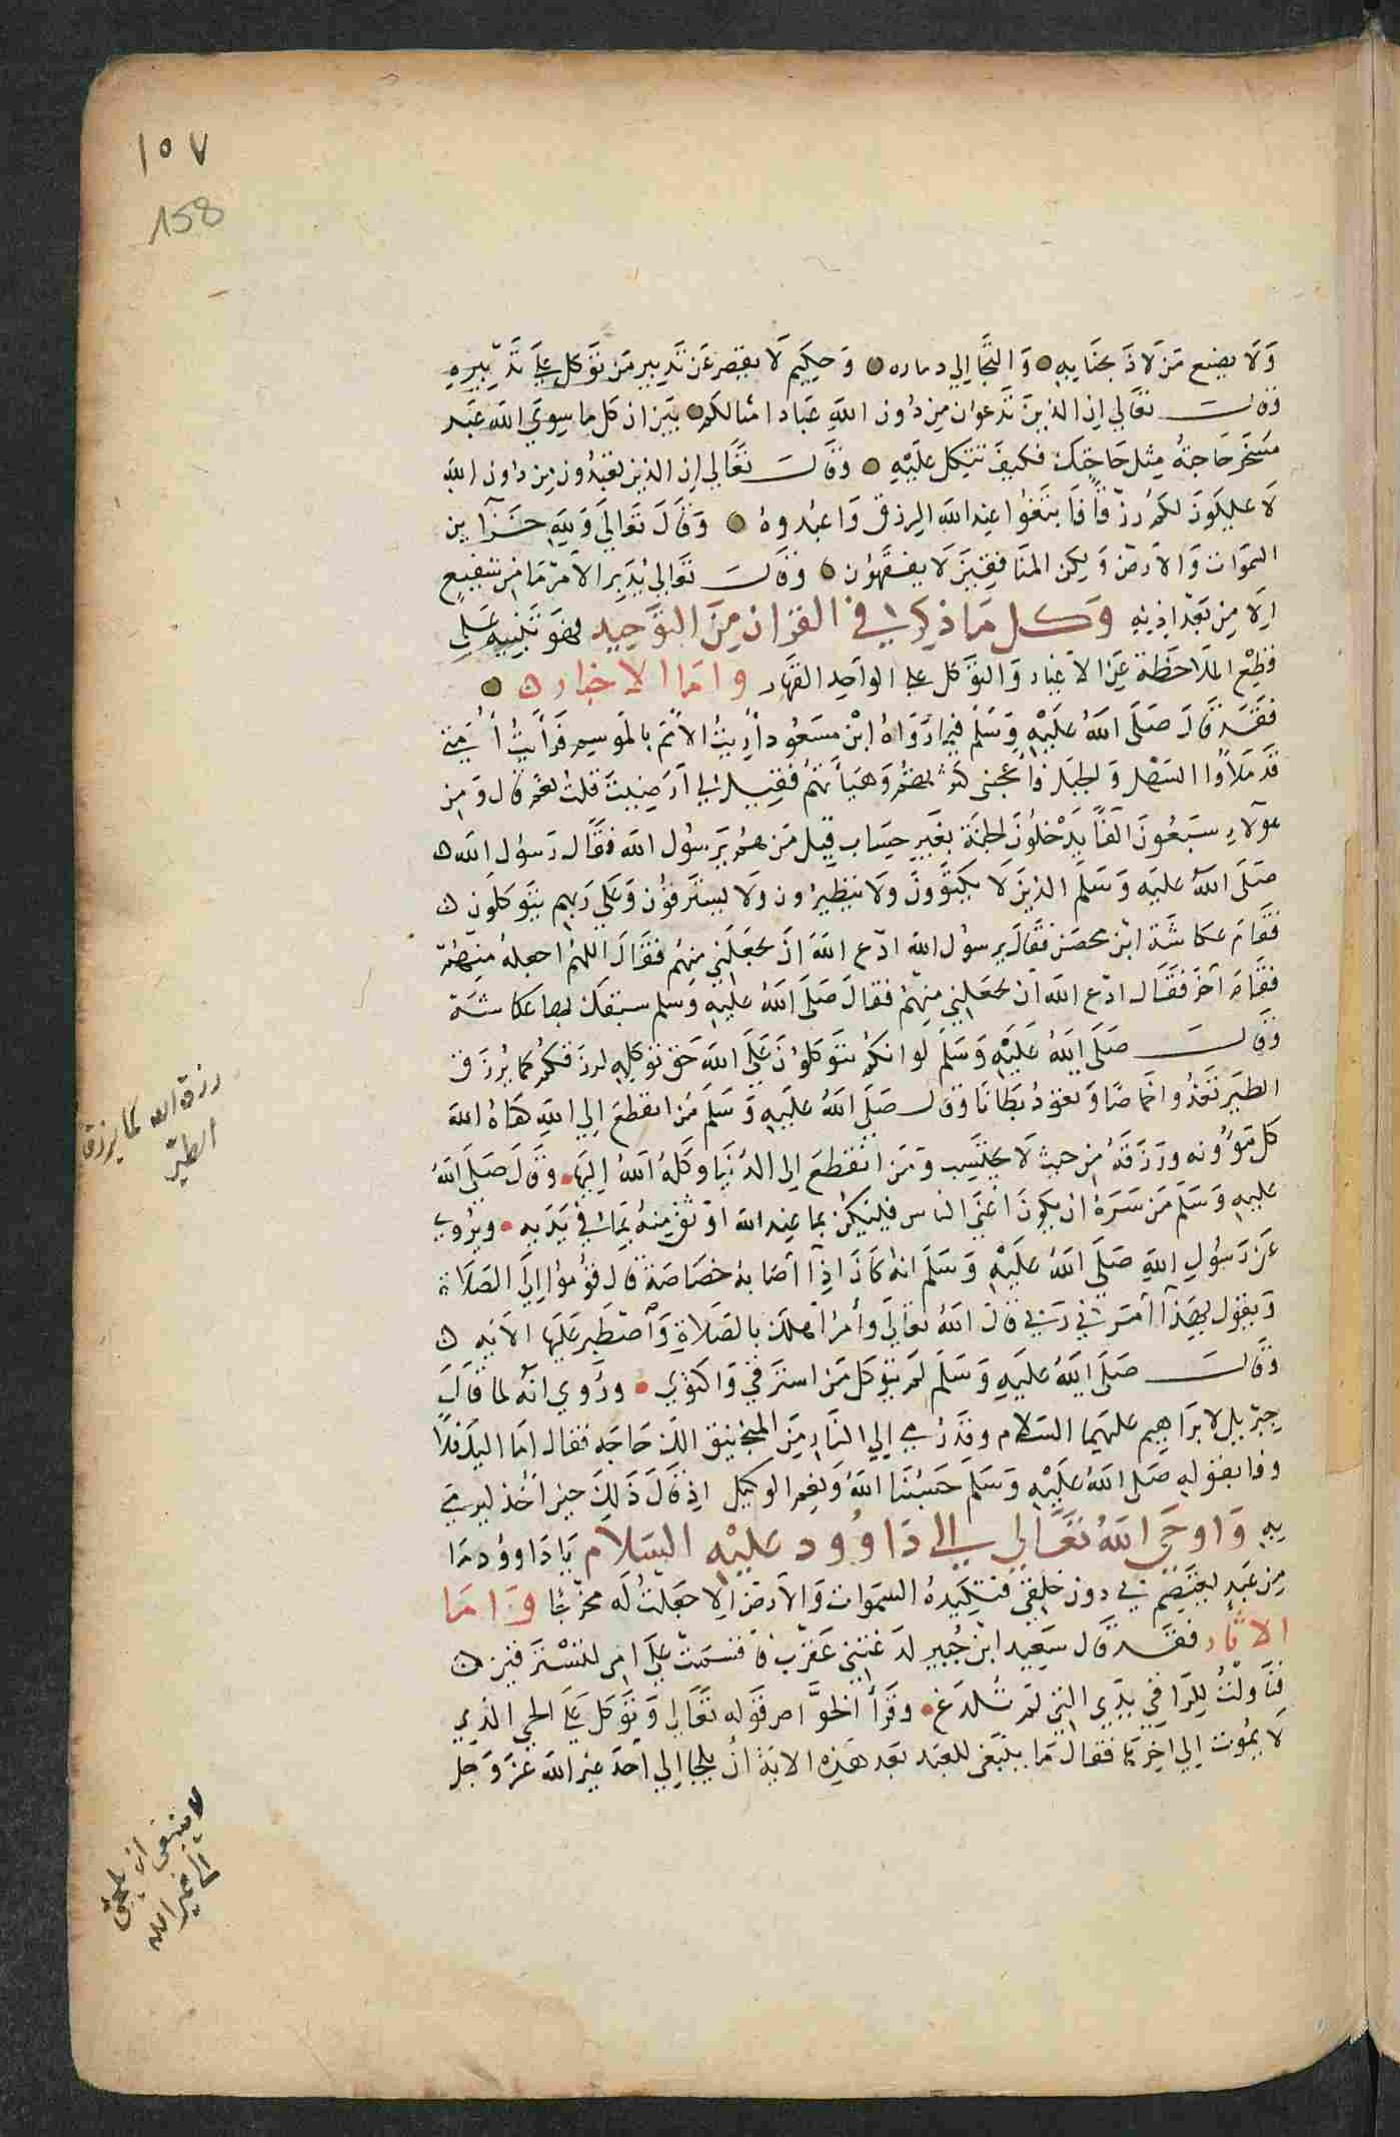 ١٥٧
158
وَلَا يضيع مَن لَاذَ بجنَابِهِ وَالتجَا الي دماره وَحكِيم لَا يقصر عَن تَدبير مَن توَكل علَي تَدبيرِهِ
وقال تعَالي ان الذينَ تَدعون مِن دُون اللهِ عبَاد امثالكم بيّن ان كل ما سِوي الله عَبد
مسَخر حَاجتهُ مِثل حَاجتك فكيفَ تتكل علَيْهِ وقال تعَالي ان الذين تعبدون مِن دون الله
لَا يملكونَ لكم رزقًا فَابتغوا عند الله الرزق وَاعبدوهُ وَقالَ تعَالي وَلِلهِ خَزآين
السمَوَات وَالارض وَلكِن المنَافِقينَ لَا يفقهون وقال تعَالي يُدَبِر الامر مَا مِن شَفيعٍ
الا مِن بَعد اذنِهِ وَكل مَا ذُكِر في القران مِنَ التوَحيد فهوَ تنبيه علي
قطِع الملاحَظة عَن الاغيار وَالتوَكل علي الواحِد القهار وامَا الاخبار
فقد قالَ صَلي اللهُ علَيْهِ وَسَلم فيمَا رَوَاهُ ابن مسعُود أُريتُ الامَم بالموَسِم فرَأيتُ أمتي
قد ملأوا السهل وَالجبل فأعجبني كثرتهم وَهيأتهم فقيل لي أرَضيت قلت نعم قال وَمِن
هولآء سَبعُونَ الفًا يدخلونَ الجنة بغير حِسَاب قيل مَن هم يَرسُول الله فقال رَسُول الله
صَلي اللهُ عليهِ وَسَلم الذينَ لَا يكتوونَ ولَا يتطيرون ولَا يسترقون وَعلي رَبهم يتوَكلون
فقامَ عكاشة ابن محصَن فقال يرسول الله ادع اللهَ ان يجعَلني منهُم فقالَ اللهُم اجعلهُ منهُم
فقامَ آخر فقال ادع الله ان يجعَلني منهم فقالَ صَلي اللهُ عليهِ وَسلم سبقك بها عكاشة
وقال صَلي اللهُ علَيْهِ وَسَلم لو انكم تتوَكلون علي الله حَق توكلِهِ لرزقكم كما يُرزق
الطير تغدُوا خماصًا وَتعودُ بطانًا وقال صَلي اللهُ علَيهِ وَسَلم مَن انقطعَ الي اللهِ كفاهُ الله
كل مَؤونه ورَزَقهُ من حيث لَا يحتَسِب وَمَن انقطعَ الي الدنيَا وكلهُ اللهُ اليهَا وقالَ صَلي اللهُ
عليهِ وَسَلم مَن سَرَهُ ان يكونَ اغني الناس فليكُن بما عند الله اوثق مِنهُ بمَا في يَدَيه ويُروي
عَن رَسُولِ اللهِ صَلي اللهُ علَيْهِ وَسَلم انهُ كانَ اذآ اصَابهُ خصَاصَة قال قومُوا الي الصَلَاة
وَيقول بهذآ أمَرَني رَبي قال اللهُ تعَالي وأمر اهلك بالصَلَاةِ وَاصطَبِر عَليهَا الايَه
وَقال صَلي اللهُ عليهِ وَسَلم لَم يتوكل مَن استرقي وَاكتوي ورُوي انهُ لما قالَ
جِبريل لابرَاهِيم علَيهما السَلام وقَد رُمي الي النار مِنَ المنجنيق الك حَاجه فقال امَا اليك فلَا
وفا بقولهِ صَلي اللهُ علَيْهِ وَسَلم حَسبنَا اللهُ وَنِعم الوكيل اذ قالَ ذَلِكَ حين أُخذ ليرمي
بِهِ وَاوحَي اللهُ تعَالي الي دَاوُود علَيْهِ السَلام يَا دَاوود مَا
مِن عَبدٍ يعتصِم بي دون خلقي فتكيدهُ السمَوات وَالارض الا جعَلتُ لَه مخرَجًا وَامَا
الاثار فقد قال سَعِيد ابن جُبير لَدَغتني عَقرب فَاقسَمَت علَي امي لتسترقين
فنَاولتُ الراقي يدَي التي لَم تُلدَغ وَقرَأ الخوَّاص قوله تعَالي وَتوَكل علَي الحي الذي
لا يموت الي اخرهَا فقال مَا ينبغي للعَبد بعد هَذِه الايَة أن يلجَا الي أحد غير الله عَزَ وَجل
رزقه الله كما يرزق
الطير
لا ينبغي ان يلتجئ
الي غير الله